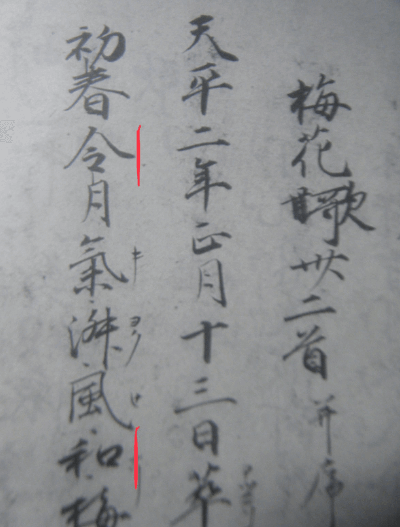 梅花歌卅二首并序
天平二年正月十三日萃
初春令月氣淑風和梅
キ
ヨク